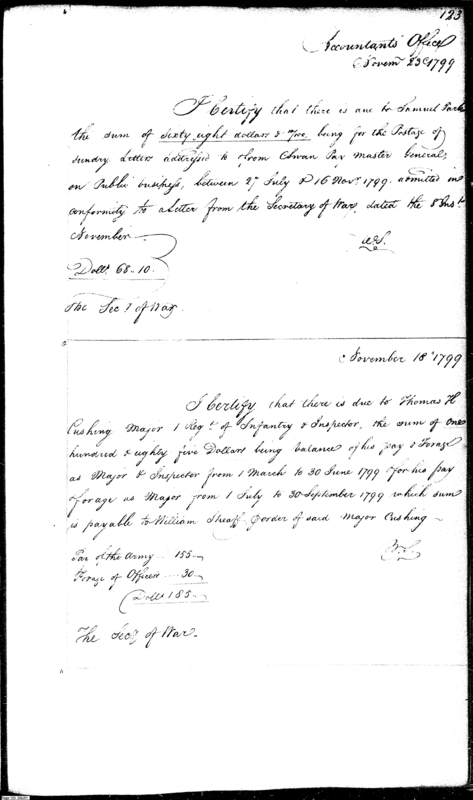 123
Accountants Office
Novemr 23d 1799
I Certify that there is due to Samuel Park
the sum of sixty eight dollars & being for the Postage of
sundry Letters address'd to Swan Pay Master General,
on Public business, between 27 July & 16 Novr 1799. admitted in
conformity to a Letter from the Secretary of War, dated the 8 Inst
November
W.S.
Dolls 68..10.
The Secy of War.
November 18th 1799
I Certify that there is due to Thomas H
Cushing Major 1 Regt of Infantry & Inspector, the sum of One
hundred & eighty five Dollars being balance of his pay & Forage
as Major & Inspector from 1 March to 30 June 1799 & for his pay
forage as Major from 1 July to 30 September 1799 which sum
is payable to William Sheaff order of said Major Cushing
W.S.
Pay of the Army .. 155..
Forage of Officers .... 30..
Dolls 185..
The Secy of War.